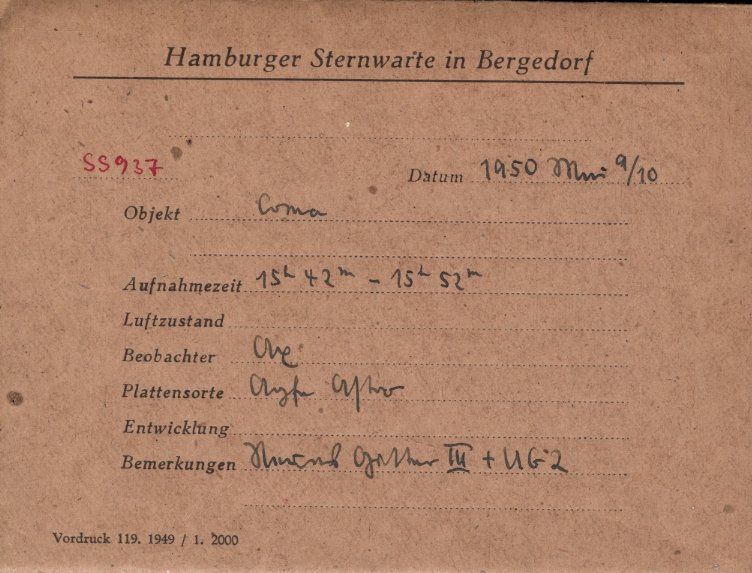 Hamburger Sternwarte in Bergedorf
SS937
Datum 1950 Mai 9/10
Objekt Coma
Aufnahmezeit 15h 42m - 15h 52m
Luftzustand
Beobachter
Plattensorte Agfa Astro
Entwicklung
Bemerkungen Gitter III + UG2
Vordruck 119. 1949 / 1. 2000